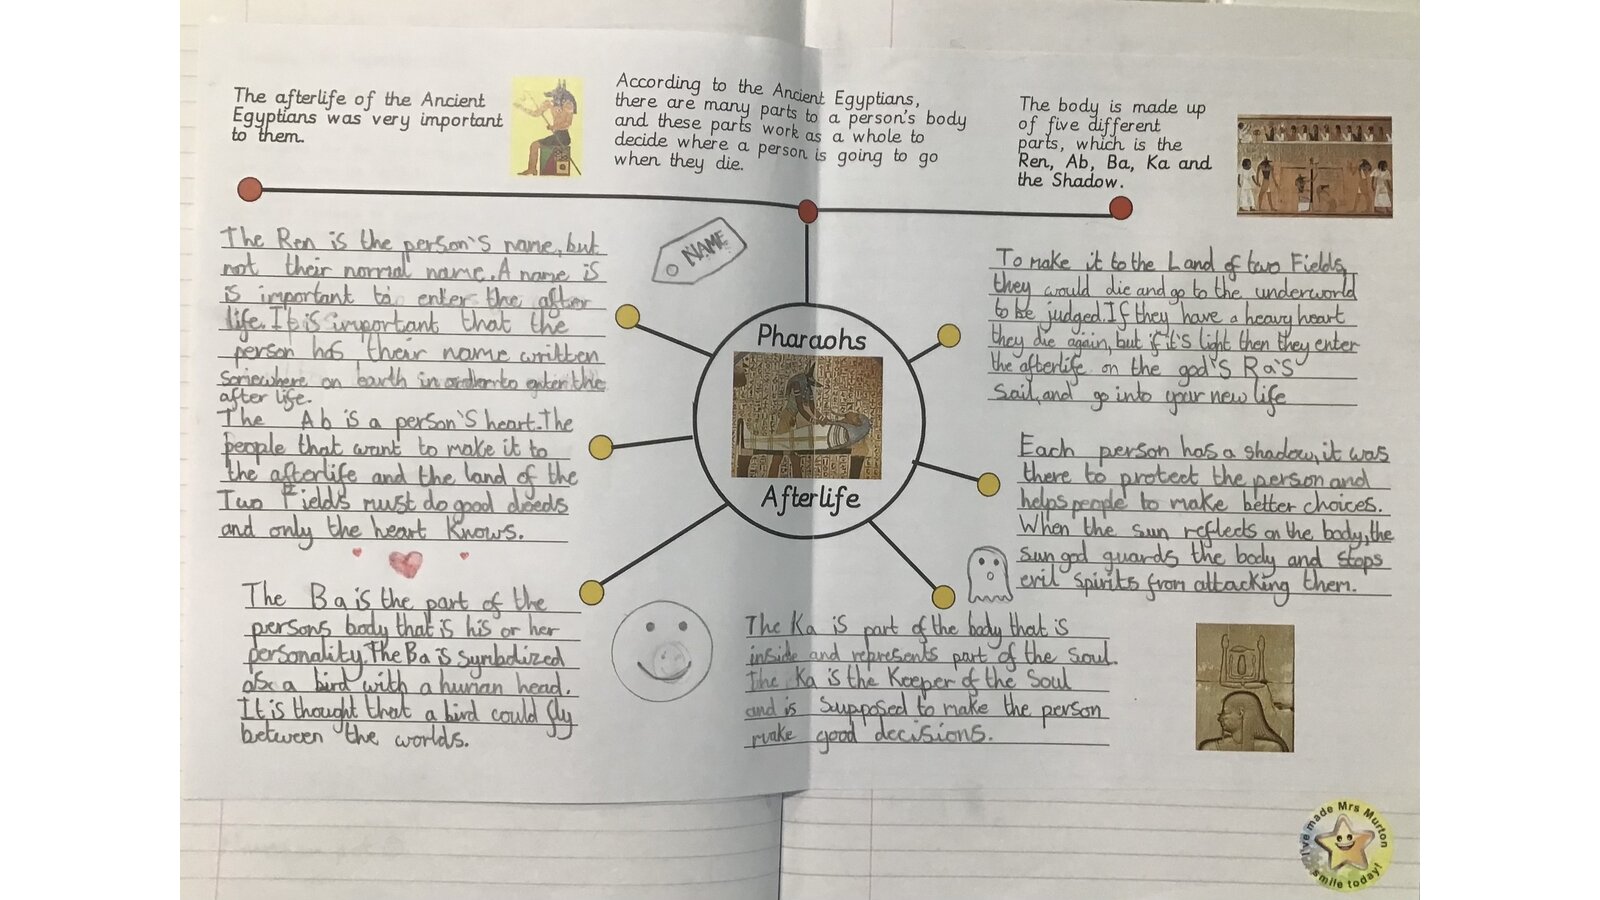 The afterlife of the Ancient
Egyptians was very important
to them.
According to the Ancient Egyptians,
there are many parts to a person's body
and these parts work as a whole to
decide where a person is going to go
when they die.
The body is made up
of five different
parts, which is the
Ren, Ab, Ba, Ka and
the Shadow.
The Ren is the person's name, but
not their normal name. A name is
is important to enter the after
life. It is important that the
person has their name written
somewhere on earth in order to enter the
after life.
NAME
The Ab is a person's heart. The
people that want to make it to
the afterlife and the land of the
Two Fields must do good deeds
and only the heart knows.
The Ba is the part of the
persons body that is his or her
personality. The Ba is symbolized
as a bird with a human head.
It is thought that a bird could fly
between the worlds.
Pharaohs
Afterlife
To make it to the Land of two Fields,
they would die and go to the underworld
to be judged. If they have a heavy heart
they die again, but if it's light then they enter
the afterlife on the god's Ra's
Sail, and go into your new life
Each person has a shadow, it was
there to protect the person and
helps people to make better choices.
When the sun reflects on the body, the
sun god guards the body and stops
evil spirits from attacking them.
The Ka is part of the body that is
inside and represents part of the soul.
The Ka is the Keeper of the Soul
and is supposed to make the person
make good decisions.
I've made Mrs Murton
smile today!